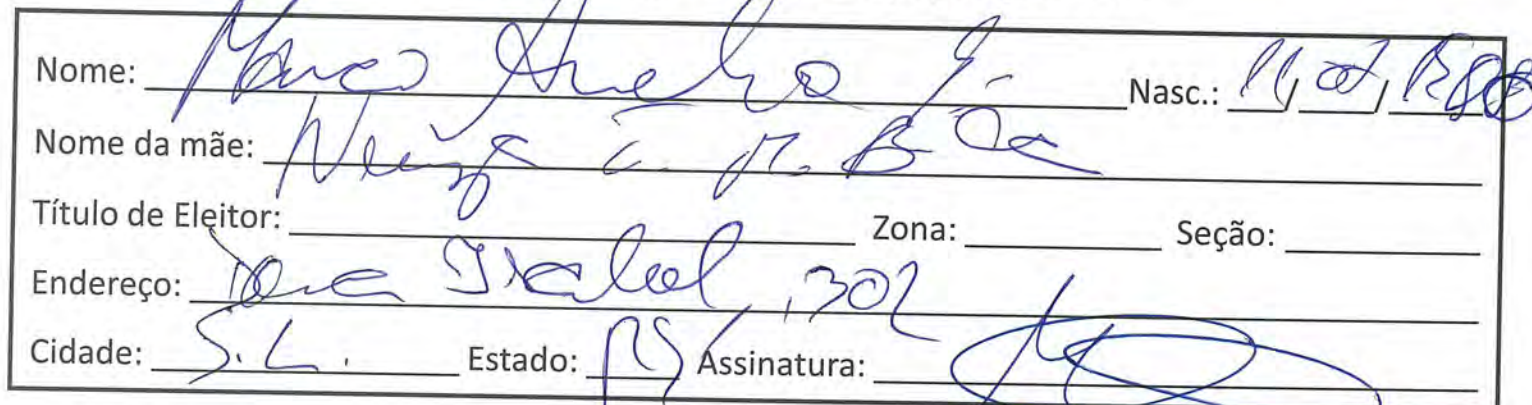 Nome: Marco Aurelio Nasc.: 11/07/
Nome da mãe: Neuza
Título de Eleitor: Zona: Seção:
Endereço: Isabel, 302
Cidade: S.L. Estado: RS Assinatura: